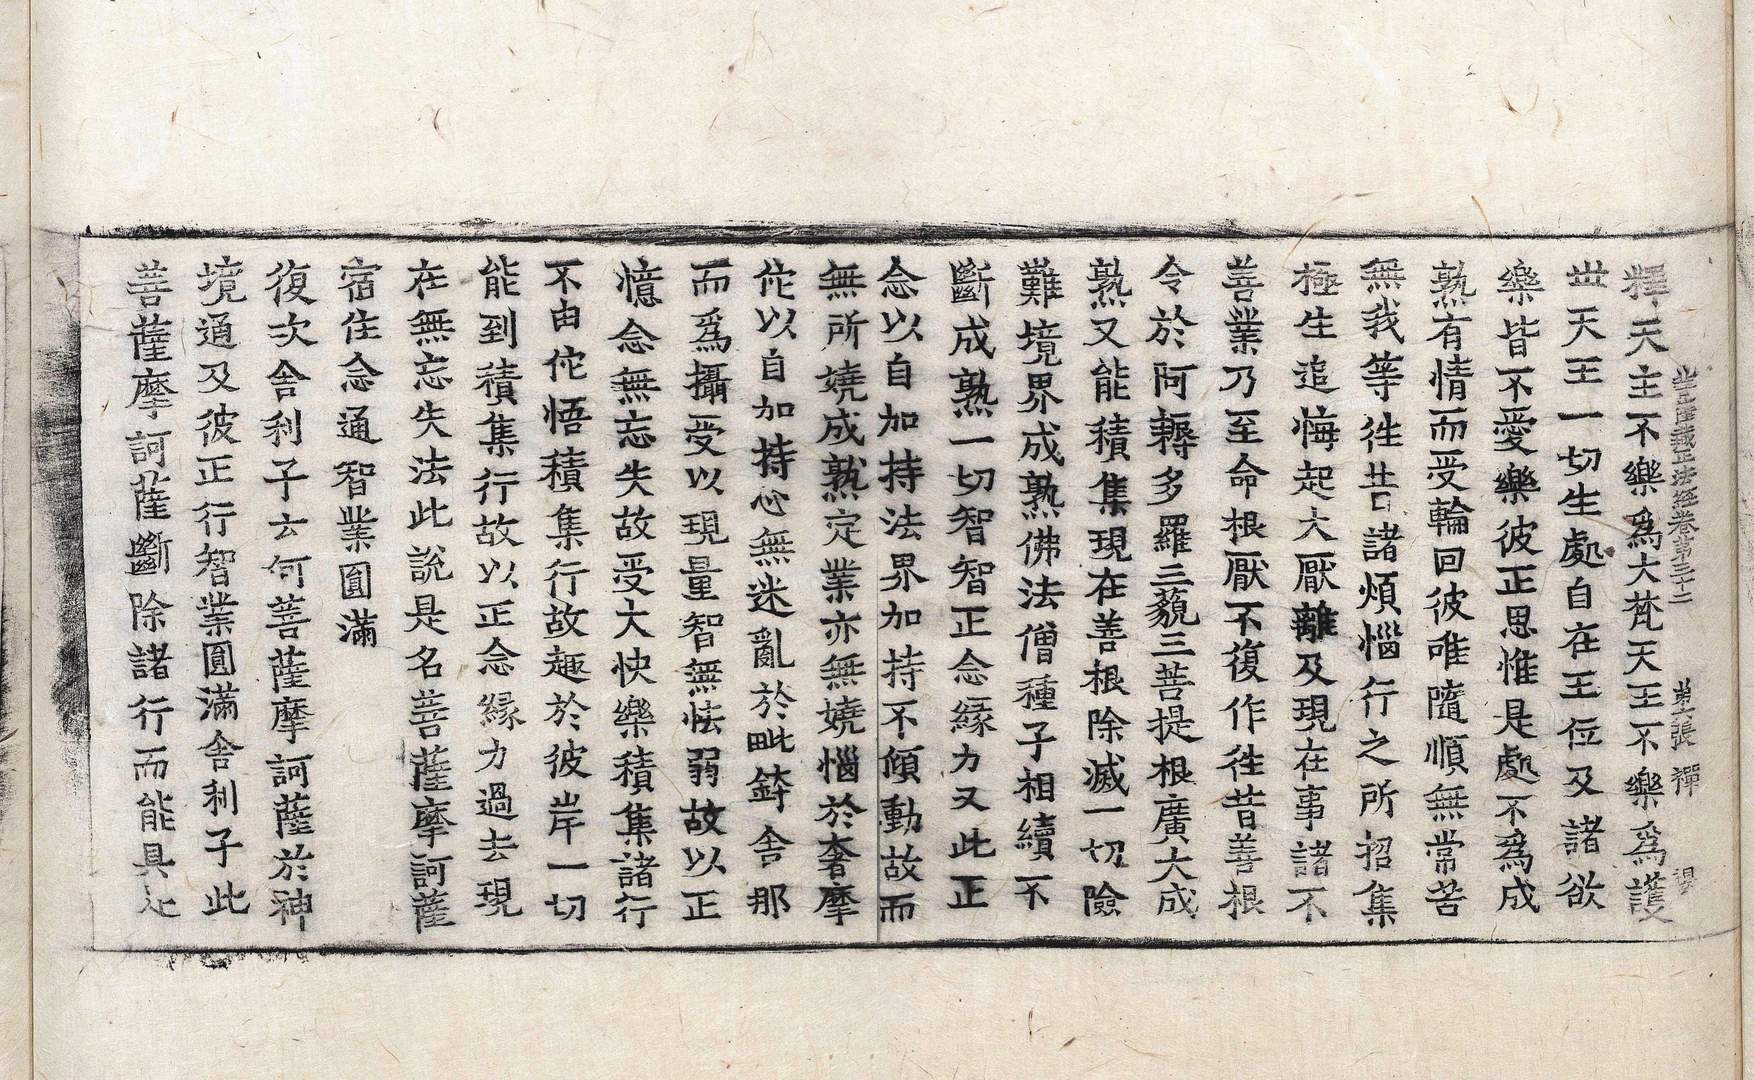 菩薩藏正法經卷第三十二 第六張 禪
釋天主不樂爲大梵天王不樂爲護
世天王一切生處自在王位及諸欲
樂皆不愛樂彼正思惟是處不爲成
熟有情而受輪回彼唯隨順無常苦
無我等徃昔諸煩惱行之所招集
極生追悔起大厭離及現在事諸不
善業乃至命根厭不復作徃昔善根
令於阿耨多羅三藐三菩提根廣大成
熟又能積集現在善根除滅一切險
難境界成熟佛法僧種子相續不
斷成熟一切智智正念緣力又此正
念以自加持法界加持不傾動故而
無所嬈成熟定業亦無嬈惱於奢摩
佗以自加持心無迷亂於毗鉢舍那
而爲攝受以現量智無怯弱故以正
憶念無忘失故受大快樂積集諸行
不由佗悟積集行故趣於彼岸一切
能到積集行故以正念緣力過去現
在無忘失法此說是名菩薩摩訶薩
宿住念通智業圓滿
復次舍利子云何菩薩摩訶薩於神
境通及彼正行智業圓滿舍利子此
菩薩摩訶薩斷除諸行而能具足